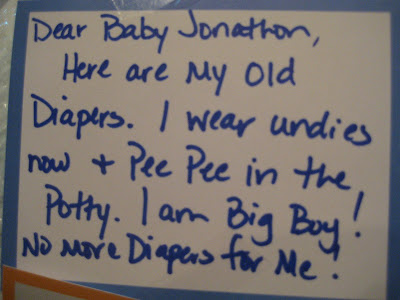 Dear Baby Jonathon,
Here are My Old
Diapers. I wear undies
now + Pee Pee in the
Potty. I am Big Boy!
No More Diapers for Me!